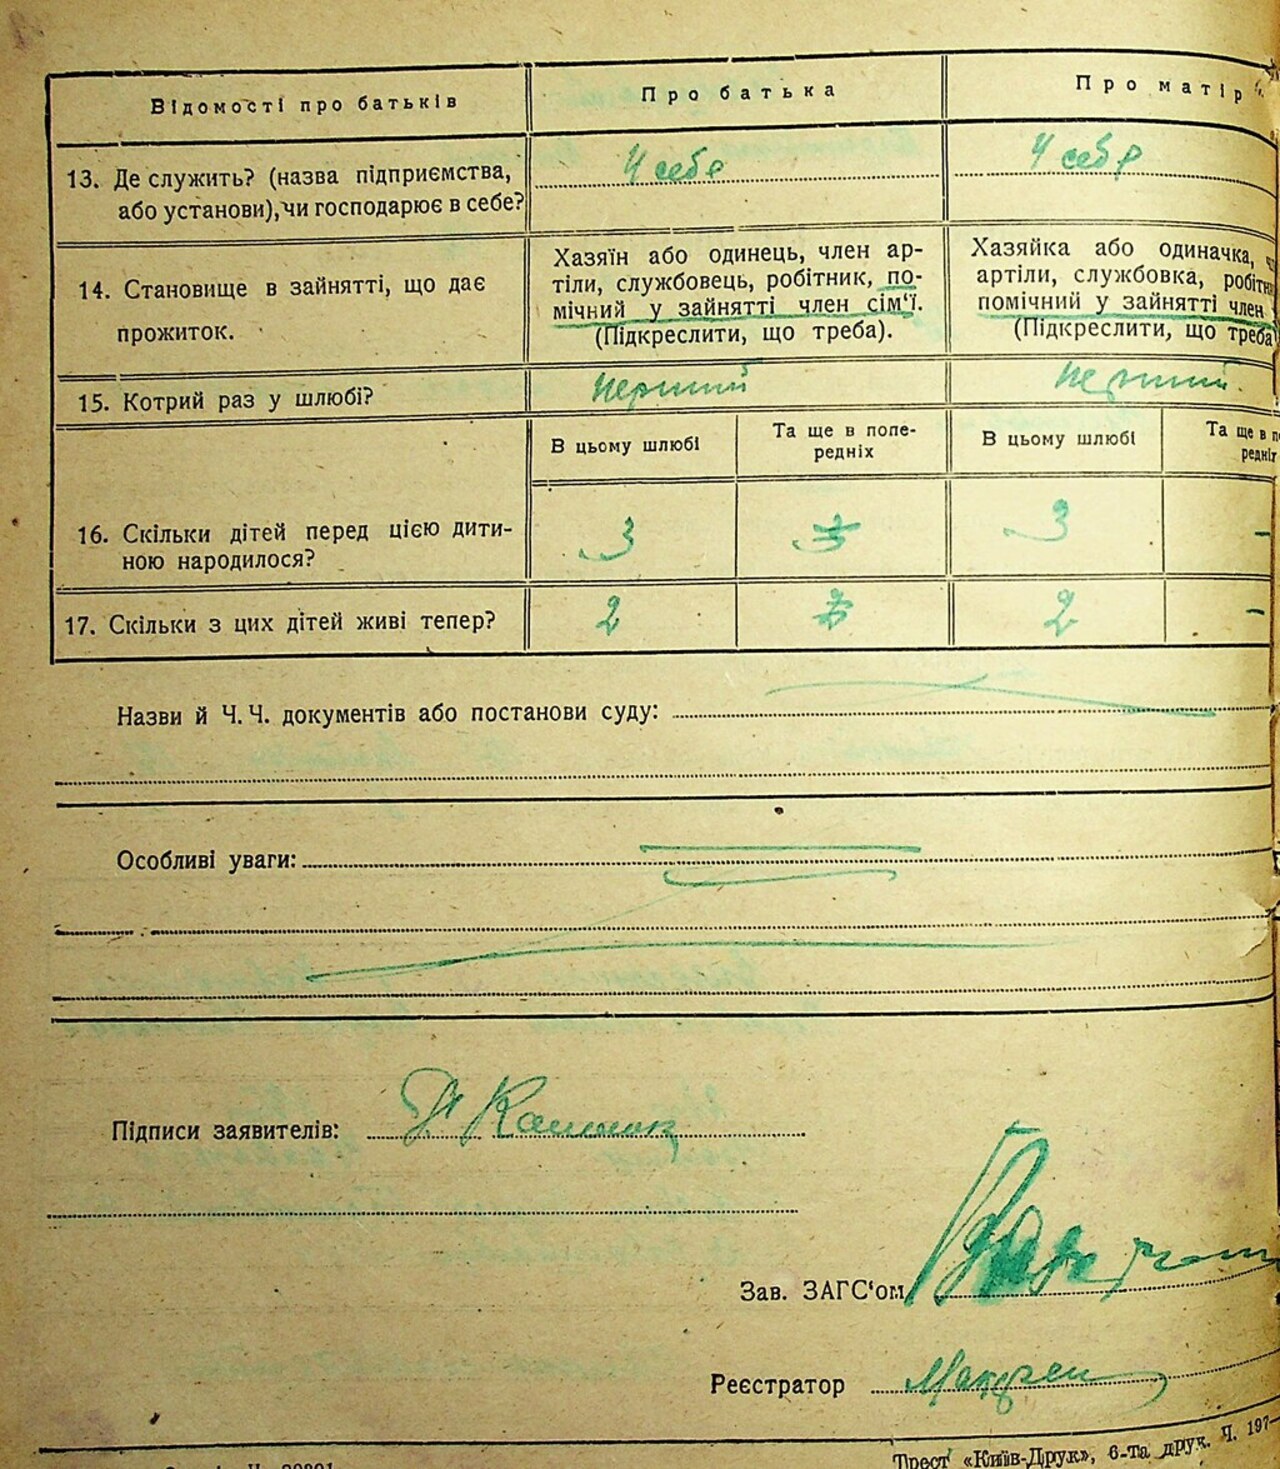 Відомості про батьків
Про батька
Про матір
13. Де служить? (назва підприємства,
або установи), чи господарює в себе?
У себе
У себе
14. Становище в зайнятті, що дає
прожиток.
Хазяїн або одинець, член ар-
тіли, службовець, робітник, по-
мічний у зайнятті член сім'ї.
(Підкреслити, що треба).
Хазяйка або одиначка,
артіли, службовка, робітн
помічний у зайнятті член
(Підкреслити, що треба)
15. Котрий раз у шлюбі?
перший
перший.
В цьому шлюбі
Та ще в попе-
редніх
В цьому шлюбі
Та ще в по
редніх
16. Скільки дітей перед цією дити-
ною народилося?
3
3
3
-
17. Скільки з цих дітей живі тепер?
2
2
-
Назви й Ч. Ч. документів або постанови суду:
Особливі уваги:
Підписи заявителів:
Зав. ЗАГС'ом
Реєстратор
Трест «Київ-Друк», 6-та друк. Ч. 197-